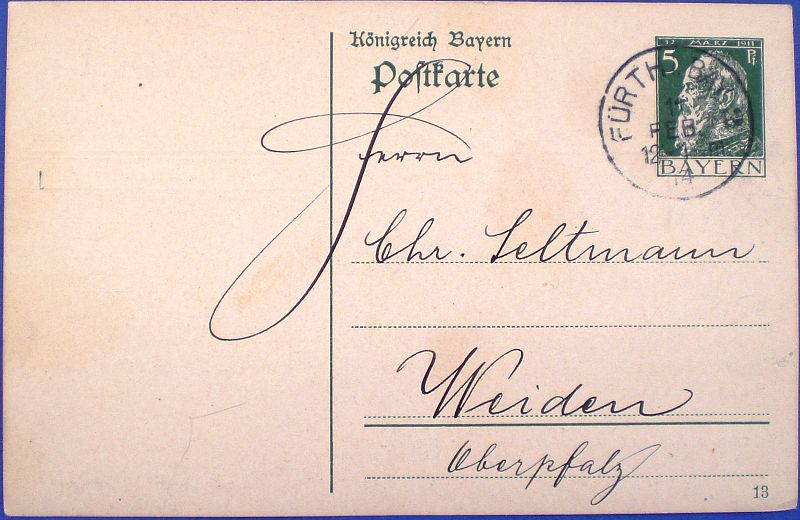 Königreich Bayern
Postkarte
17 MÄRZ 1911
5 Pf
BAYERN
FÜRTH
11
FEB.
12
14
Herrn
Chr. Seltmann
Weiden
Oberpfalz
13